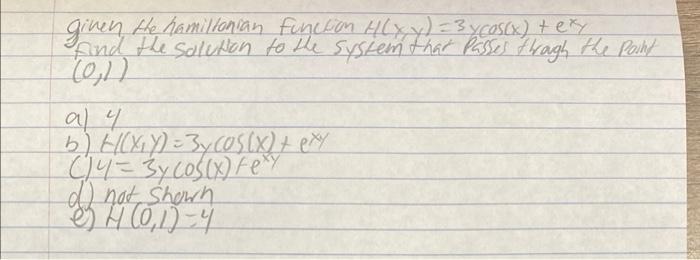 given the hamiltonian function H(x,y)=3ycos(x) + e^xy
Find the solution to the system that Passes through the point
(0,1)
a) 4
b) H(x,y)=3ycos(x)+e^xy
c) 4=3ycos(x)+e^xy
d) not shown
e) H(0,1)=4